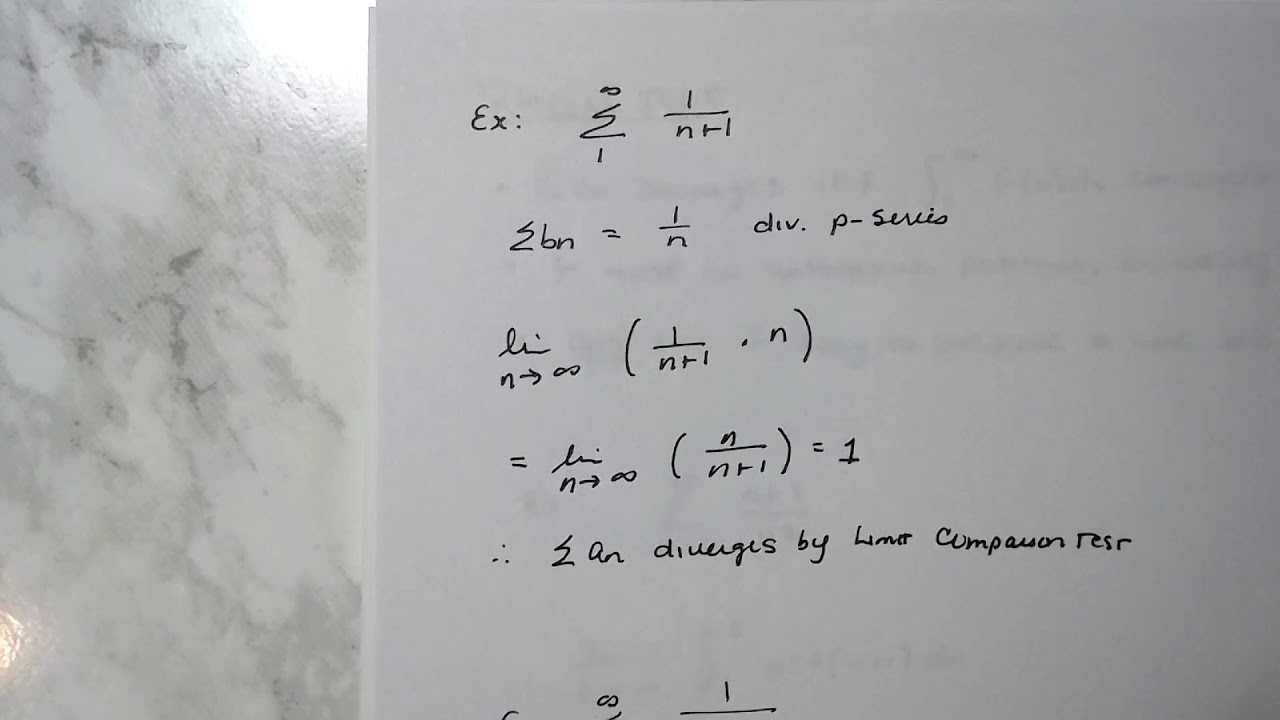 Ex: ∞ Σ 1 1/(n+1)
Σbn = 1/n div. p-series
lim n→∞ (1/(n+1) · n)
= lim n→∞ (n/(n+1)) = 1
∴ Σ an diverges by Limit Comparison Test
∞ 1